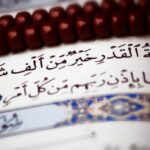 ةُ ٱلْقَدْرِ خَيْرٌ مِّنْ أَلْفِ شَ
ا بِإِذْنِ رَبِّهِم مِّن كُلِّ أَمْرٍ